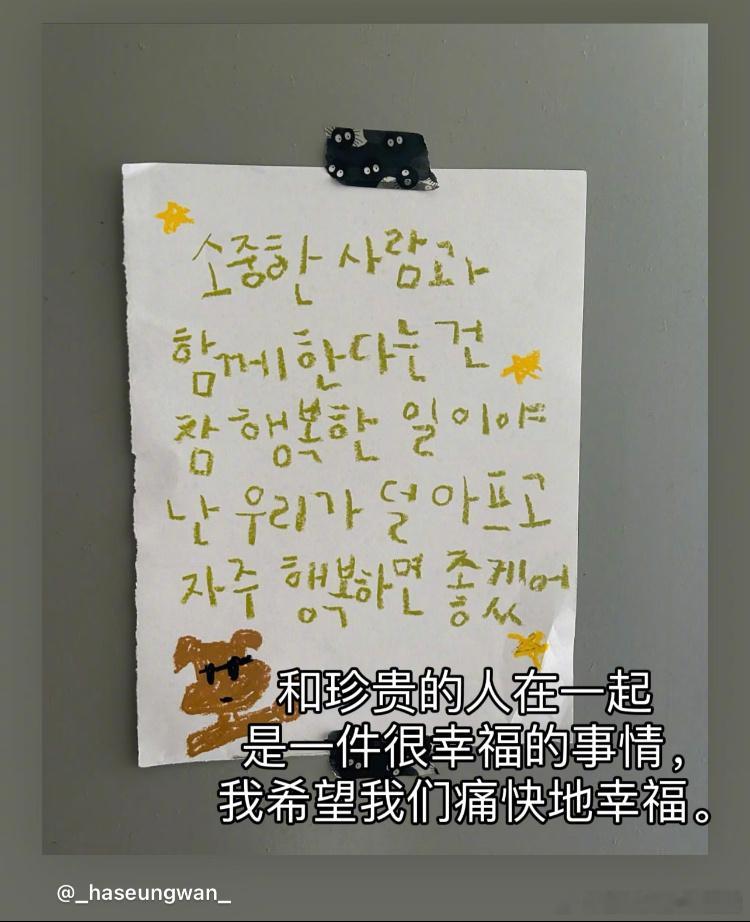 소중한 사람과
함께 한다는 건
참 행복한 일이야
난 우리가 덜 아프고
자주 행복하면 좋케어
ㅎㅆ
和珍贵的人在一起
是一件很幸福的事情，
我希望我们痛快地幸福。
@_haseungwan_